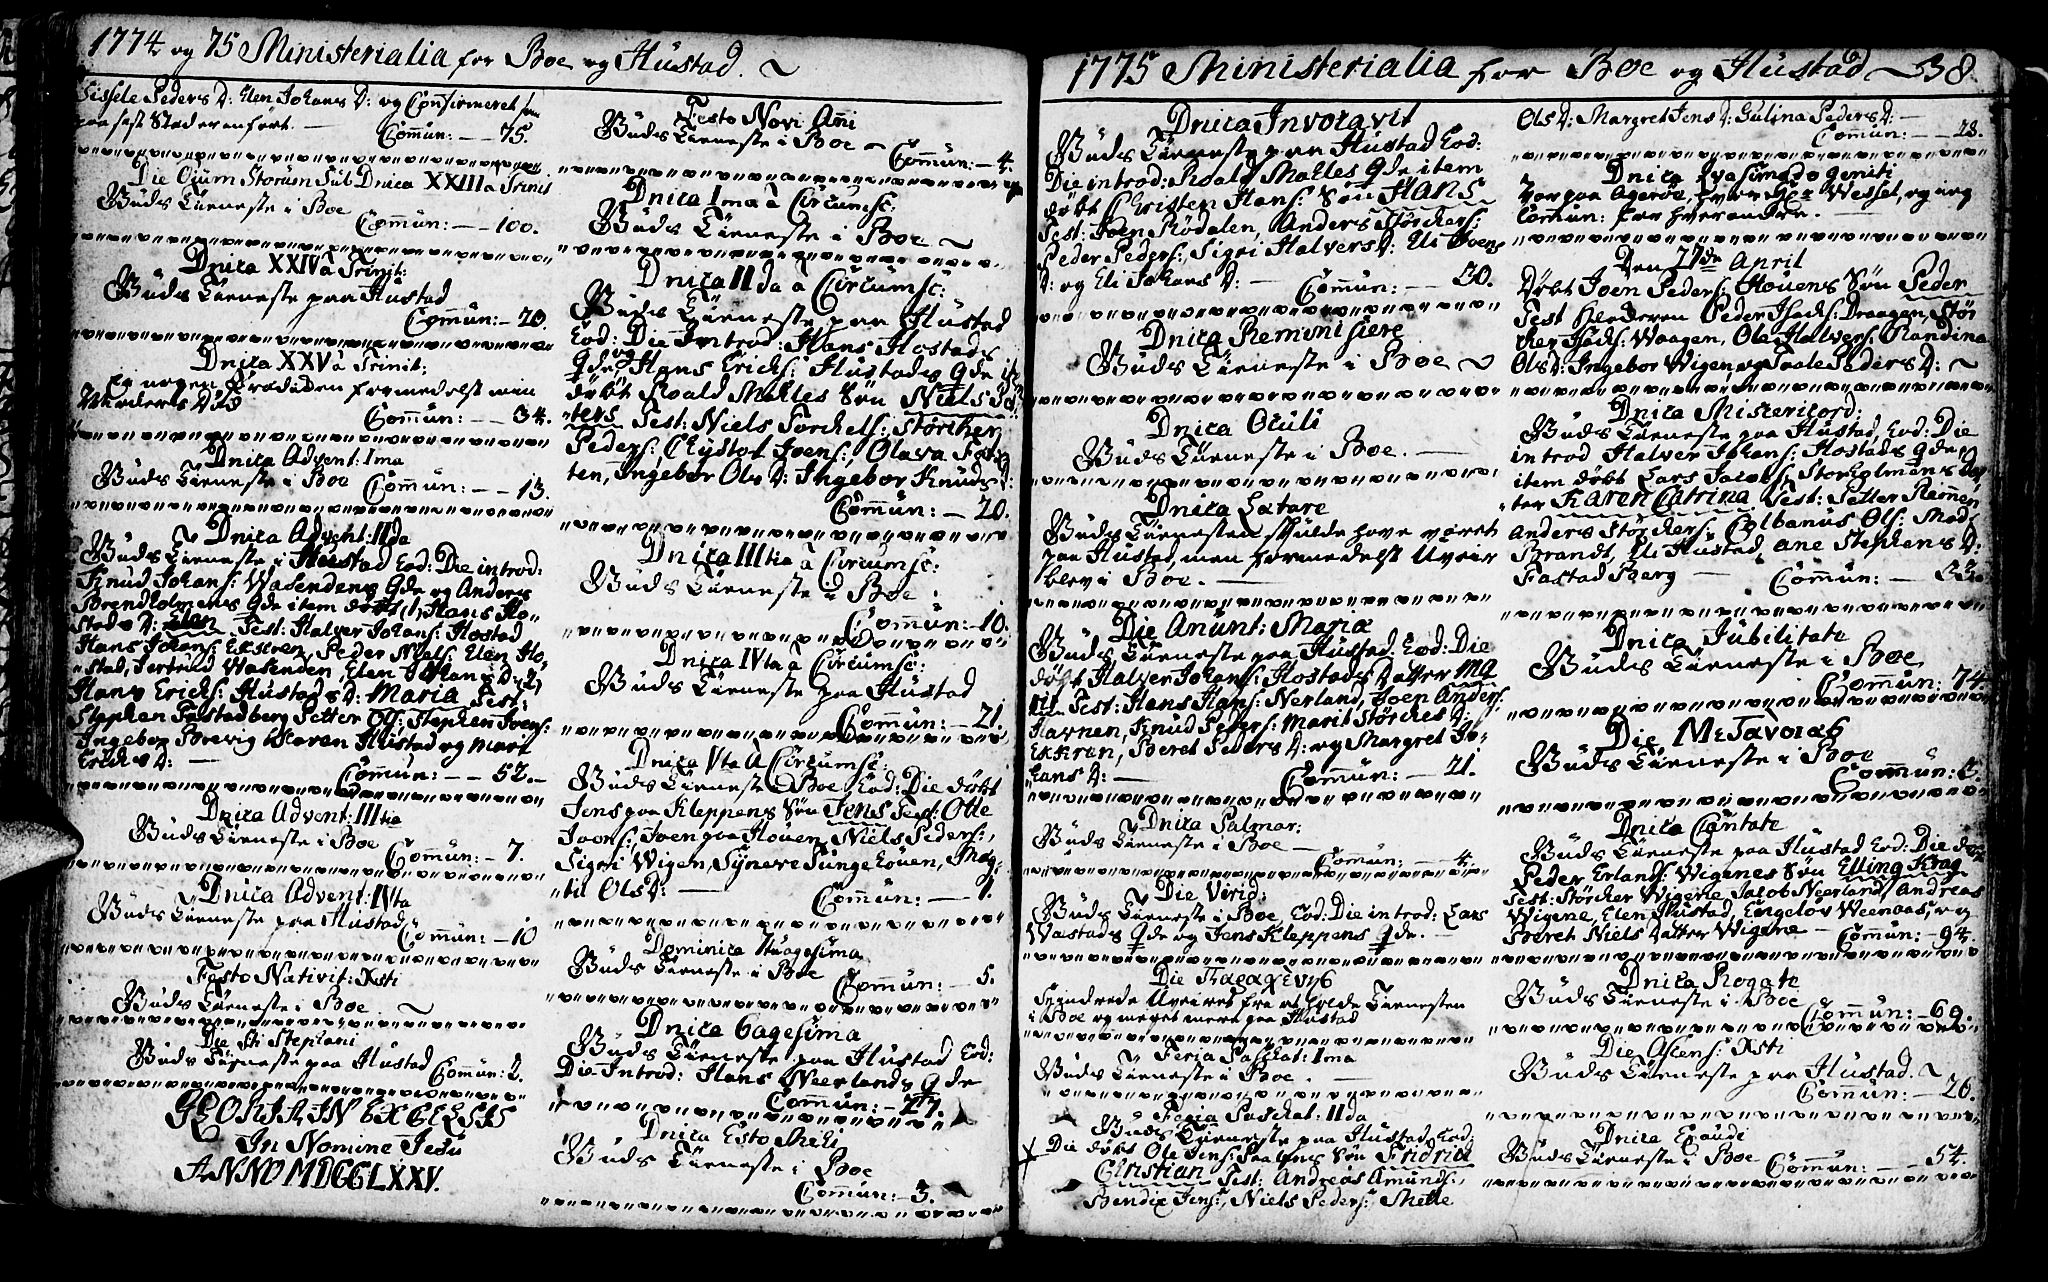 1774 og 75 Ministerialia for Boe og Hustad.
Sissele Peders D: Elen Johans D: og Confirmeret
paa sist Steder anfört. — Com̄un: — 75.
Die Om̄ Storum Sub Dnica XXIII à Trinit
Guds Tieneste i Boe
Com̄un: — 100.
Dnica XXIV à Trinit:
Guds Tieneste paa Hustad
Com̄un: — 20.
Dnica XXV à Trinit:
formedelst min
Com̄un: — 34.
Dnica Advent: Ima
Guds Tieneste i Boe Com̄un: — 13.
Dnica Advent: IIda
Guds Tieneste i Hustad Eod: Die introd:
Knud Johans: Wasendens Qde og Anders
Brendholmens Qde item döbt 1, Hans Ho-
stads D: Elen Test: Halver Johans: Hostad
Hans Johans: Exkren, Peder Niels: Elen Ho-
stad, Wasenden, Elen Johans D: 2,
Hans Ericks: Hustads D: Maria Test:
Stephen Fastadberg Petter Ols: Stephen Joens:
Ingebor Brevig Maren Hustad og Marit
Ericks D: —
Com̄un: — 52. —
Dnica Advent: IIItia
Guds Tieneste i Boe
Com̄un: — 7.
Dnica Advent: IVta
Guds Tieneste paa Hustad
Com̄un: — 10
Festo Nativit: Xsti
Guds Tieneste i Boe
Die Sti Stephani
Guds Tieneste paa Hustad Com̄un: 2.
GLORIA IN EXCELSIS
In Nomine Jesu
ANNO MDCCLXXV.
Festo Novi Ani
Guds Tieneste i Boe —
Com̄un: — 4.
Dnica Ima à Circumsc:
Guds Tieneste i Boe
Dnica IIda à Circumsc:
Guds Tieneste paa Hustad
Eod: Die Introd: Hans Hostads
Qde og Hans Ericks: Hustads Qde it:
döbt Roald Malles Sön Niels Pe-
ters Test: Niels Torchels: Störcher
Peders: Chystof Joens: Olava
ten, Ingebor Ols D: Ingebor Knuds D:
Com̄un: — 20.
Dnica IIItia à Circumsc:
Guds Tieneste i Boe
Com̄un: — 10.
Dnica IVta à Circumsc:
Guds Tieneste paa Hustad
Com̄un: — 21.
Dnica Vta à Circumsc:
Guds Tieneste i Boe Eod: Die döbt
Jens paa Kleppens Sön Jens Test: Otte
Joens: Joen paa Houen, Niels Peders:,
Sigri Wigen, Synere Tungelöuen, Mag-
til Ols D: —
Com̄un: — 1.
Dominica 7tuagesima
Guds Tieneste i Boe
Com̄un: — 5.
Dnica 6agesima
Guds Tieneste paa Hustad Eod:
Die Introd: Hans Neerlands Qde
Com̄un: — 27.
Dnica Esto Mihi
Guds Tieneste i Boe
Com̄un: — 3.
1775 Ministerialia for Boe og Hustad — 38.
Dnica Invocavit
Guds Tieneste paa Hustad Eod:
Die introd: Roald Malles Qde item
döbt Christen Hans: Sön Hans
Test: Joen Rödalen, Anders Störckers:
Peder Peders: Sigri Halvers D: Eli Joens
D: og Eli Johans D: — Com̄un: — 30.
Dnica Reminiscere
Guds Tieneste i Boe
Dnica Oculi
Guds Tieneste i Boe. —
Dnica Lætare
Guds Tienesten skulde have været
paa Hustad, men formedelst Uveir
blev i Boe. —
Die Anunt: Mariæ
Guds Tieneste paa Hustad. Eod: Die
döbt Halver Johans: Hostads Datter Ma
rit Test: Hans Hans: Nerland, Joen Anders:
Havnen, Knud Peders: Marit Störckes D:
Exkren, Beret Peders D: og Margret Jo-
hans D: — Com̄un: — 21.
Dnica Palmar:
Guds Tieneste i Boe —
Com̄un: — 4.
Die Virid:
Guds Tieneste i Boe, Eod: Die introd: Lars
Wastads Qde og Jens Kleppens Qde. —
Die Παρασκευης
hindrede Uveiret fra at holde Tienesten
i Boe og meget mere paa Hustad
Feria Paschat: Ima
Guds Tieneste i Boe. —
Feria Paschat: IIda
Guds Tieneste paa Hustad Eod:
Die döbt Ole Jens: Sön Fridrich
Christian Test: Andreas Amunds:,
Bendic Jens:, Niels Peders: Malle
Ols D: Margret Jens D: Gulina Peders D: —
Com̄un: — 28.
Dnica Qvasimodogeniti
var paa Ageröe, Wessel, og ieg
Com̄un: for hverandre. —
Den 27de April
Döbt Joen Peders: Houens Sön Peder
Test Peder Isachs: Draagen, Stör
cker Isachs: Waagen, Ole Halvers: Randina
Ols D: Ingebor Wigen, og Paale Peders D:
Dnica Misericord:
Guds Tieneste paa Hustad Eod: Die
introd Halver Johans: Hostads Qde
item döbt Lars Jacobs: Storholmens Dat-
ter Karen Catrina Test: Petter Remmen
Anders Störckers: Colbanus Ols: Mad:
Brandt, Eli Hustad, Ane Stephens D:
Fastad Berg — Com̄un: —
Dnica Jubilitate
Guds Tieneste i Boe
Com̄un: 74
Die Μεταvoιας
Guds Tieneste i Boe
Com̄un: 5.
Dnica Cantate
Guds Tieneste paa Hustad Eod: Die döbt
Peder Erlands: Wigenes Sön Elling Krag
Test: Störcker Wigene, Jacob Neerland, Andreas
Wigene, Elen Hustad, Engelov Weenaas, og
Beret Niels Datter Wigene — Com̄un: — 94.
Dnica Rogate
Guds Tieneste i Boe
Com̄un: — 69.
Die Ascens: Xsti
Guds Tieneste paa Hustad.
Com̄un: — 26.
Dnica Exaudi
Guds Tieneste i Boe
Com̄un: — 54.